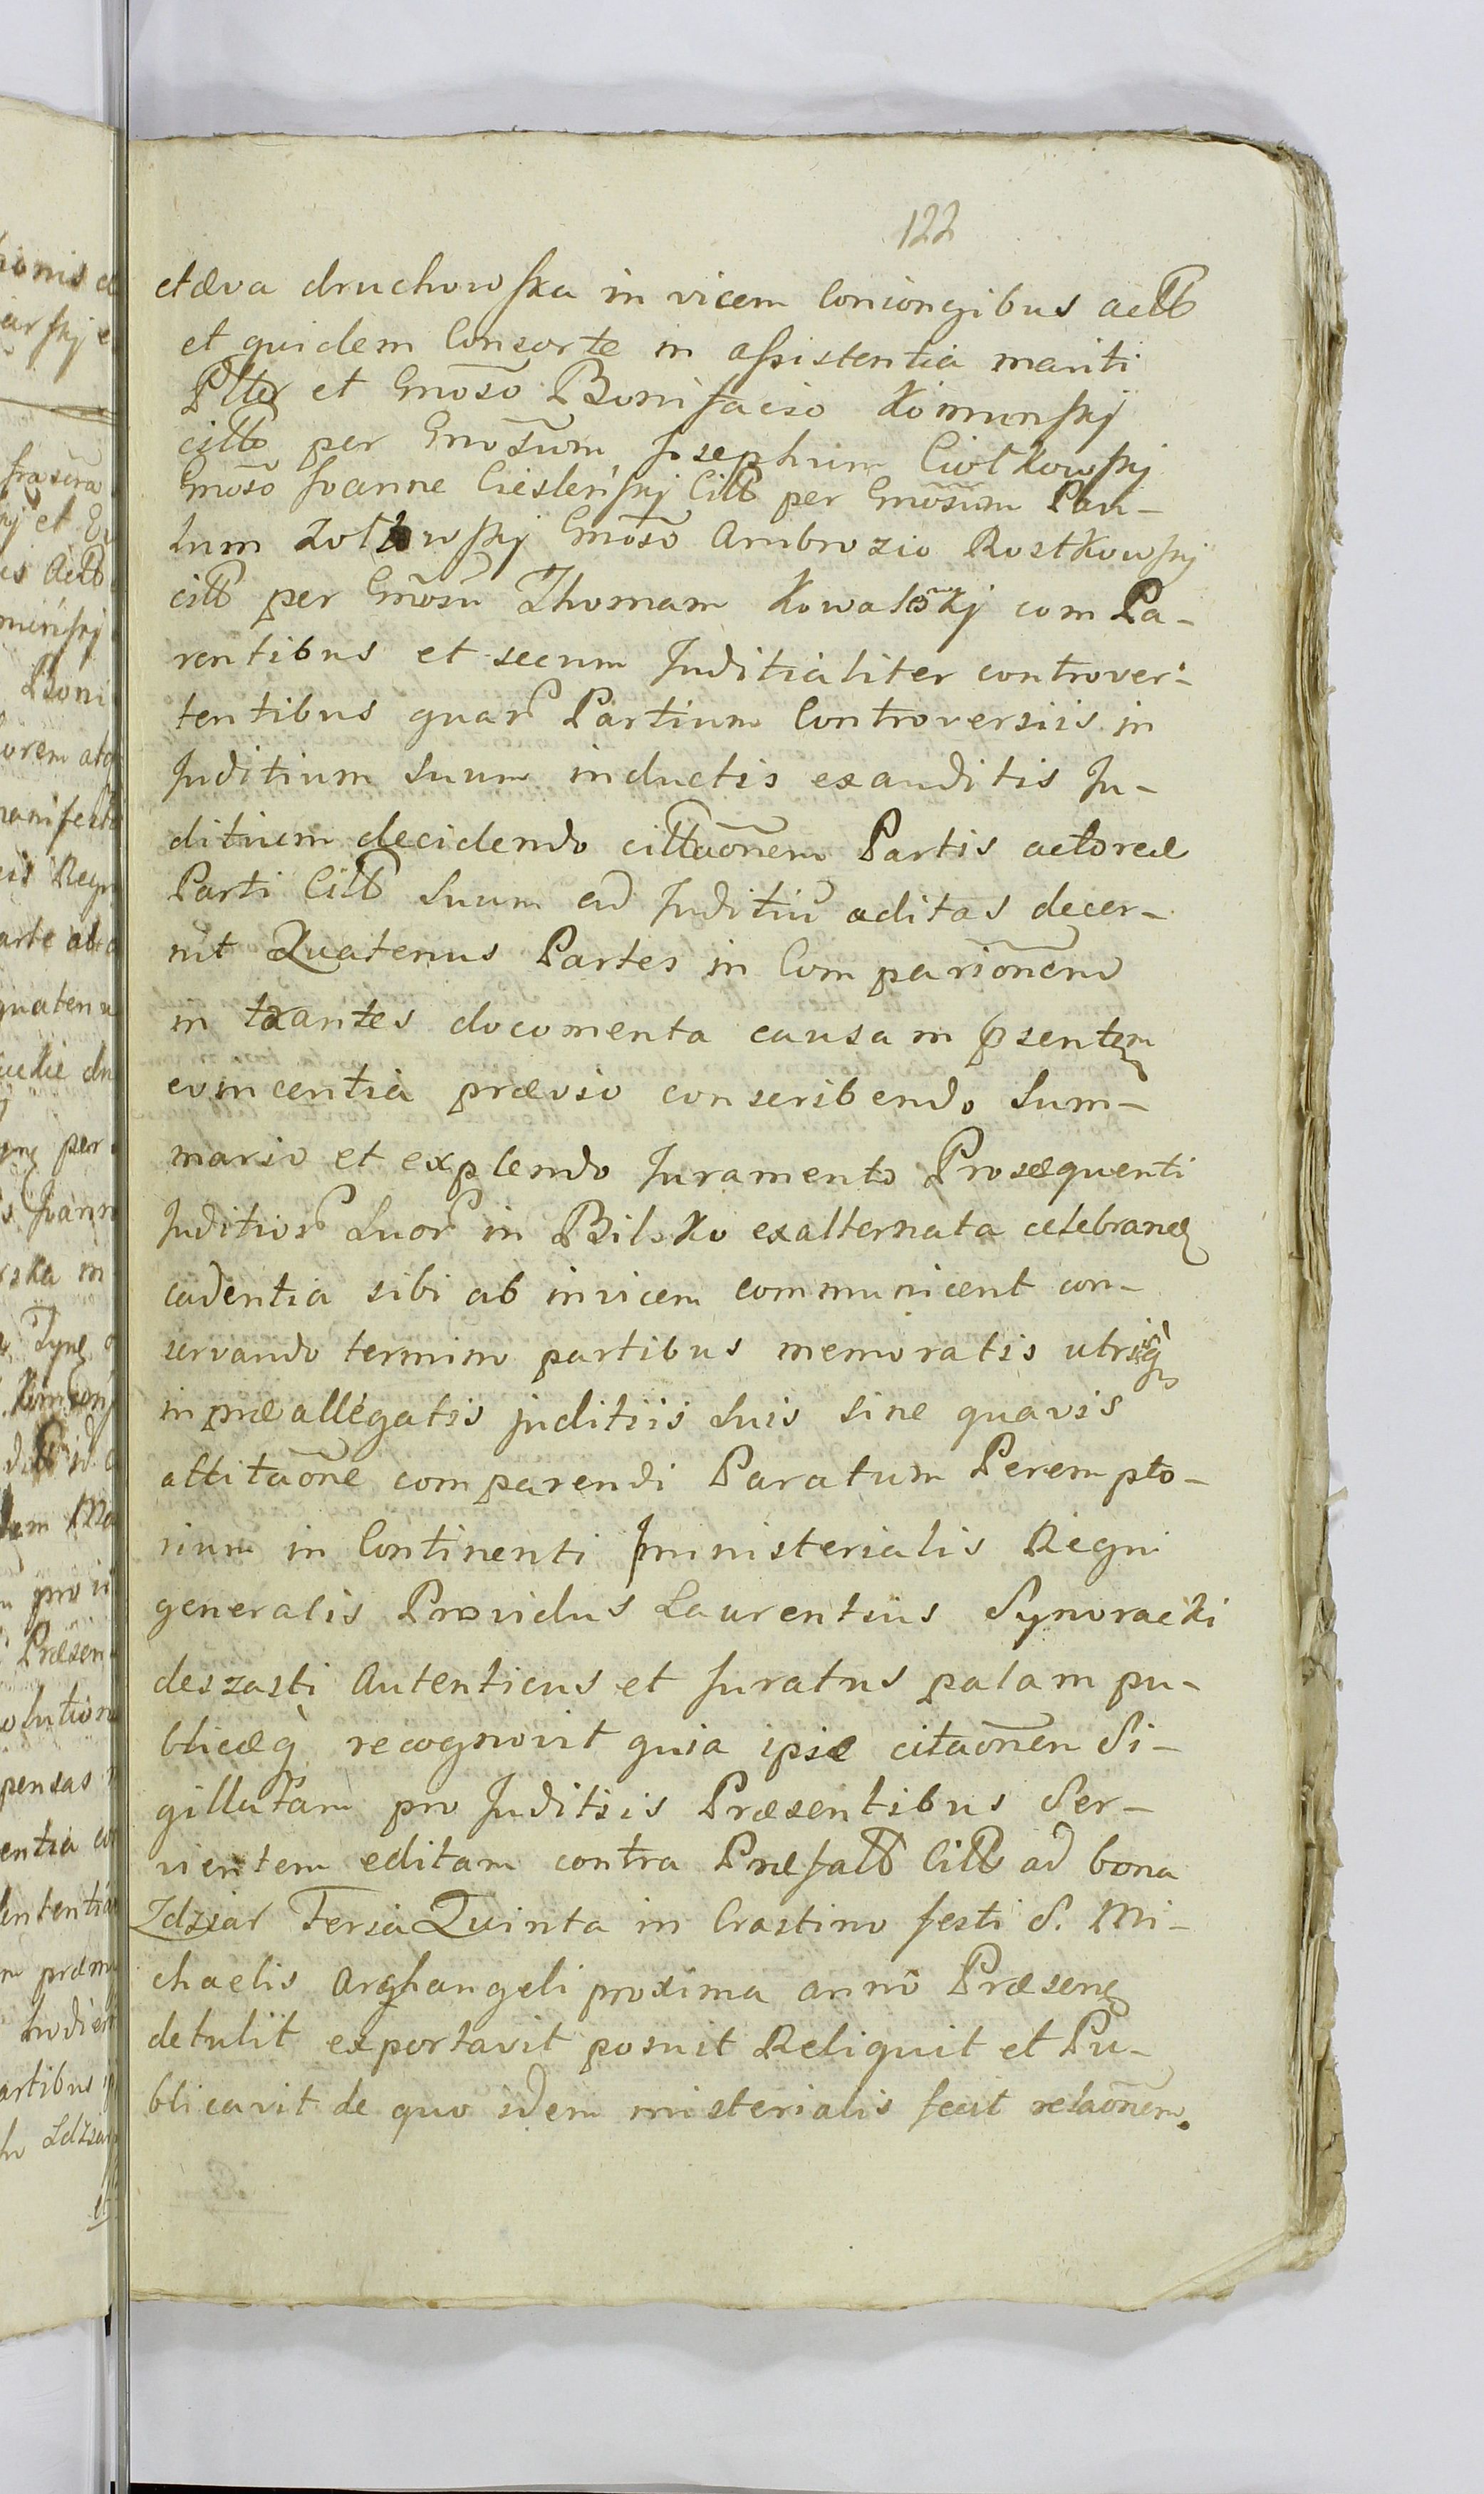 122
et æva druchowska in vicem Coniongibus actt
et quidem Consorte in assistentia mariti
et Gnoso Bonifacio Kominskj
citt per Gnosum Josephum Ciołkowskj
Gnoso Joanne Ciesleńskj Citt per Gnosum Pau-
lum Gnoso Ambrozio Rostkowskj
citt per Gnosu Thomam Kowalskj com Pa-
rentibus et secum Juditialiter controver-
tentibus quar Partium Controversiis in
Juditium suum inductis exauditis Ju-
ditium decidendo cittaõnem Partis actoreæ
Parti Citt suum ad Juditiu aditas decer-
nit Quatenus Partes in Comparionem
in txantes documenta causam psentem
evincentia prævio conscribendo Sum-
mario et explendo Juramento Prosæquenti
Juditior Suor in Bilsko exalternata celebran
cadentia sibi ab invicem communicent con-
servando termino partibus memoratis utrisq
in præallegatis juditiis suis sine quavis
attitaõne comparendi Paratum Perempto-
rium in Continenti ministerialis Regni
generalis Providus Laurentius Synoracki
deszasti Autenticus et Juratus palam pu-
blicæq recognovit quia ipse citaõnen Si-
gillatam pro Juditiis Præsentibus Ser-
vientem editam contra Præfatt Citt ad bona
Zdziar Feria Quinta in Crastino festi S. Mi-
chaelis Arghangeli proxima anno Præsen
detulit exportavit posuit Reliquit et Pu-
blicavit de quo idem misterialis fecit relaõnem.